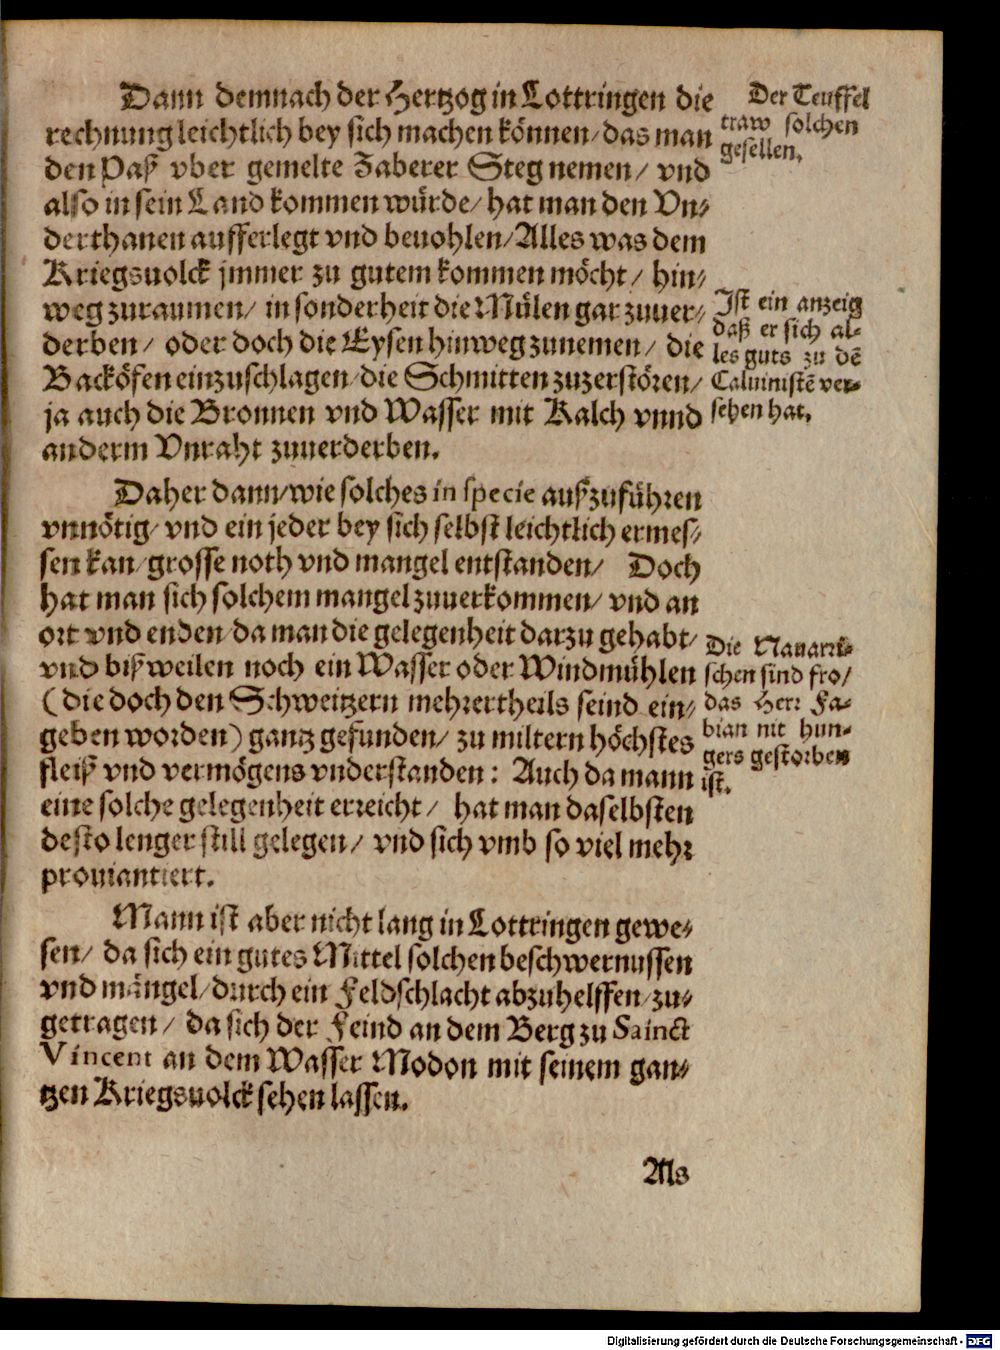 Dann demnach der Hertzog in Lottringen die
rechnung leichtlich bey sich machen können/ das man
den Paß vber gemelte Zaberer Steg nemen/ vnd
also in sein Land kommen würde/ hat man den Vn-
derthanen aufferlegt vnd beuohlen/ Alles was dem
Kriegsuolck jmmer zu gutem kommen möcht/ hin-
weg zuraumen/ in sonderheit die Mülen gar zuuer-
derben/ oder doch die Eysen hinweg zunemen/ die
Backöfen einzuschlagen/ die Schmitten zuzerstören/
ja auch die Bronnen vnd Wasser mit Kalch vnnd
anderm Vnraht zuuerderben.
Der Teuffel
traw solchen
gesellen.
Ist ein anzeig
daß er sich al-
les guts zu dē
Caluinistē ver-
sehen hat.
Daher dann/ wie solches in specie außzuführen
vnnötig/ vnd ein jeder bey sich selbst leichtlich ermes-
sen kan/ grosse noth vnd mangel entstanden/ Doch
hat man sich solchem mangel zuuerkommen/ vnd an
ort vnd enden/ da man die gelegenheit darzu gehabt/
vnd bißweilen noch ein Wasser oder Windmühlen
(die doch den Schweitzern mehrertheils seind ein-
geben worden) gantz gefunden/ zu miltern höchstes
fleiß vnd vermögens vnderstanden: Auch da mann
eine solche gelegenheit erreicht/ hat man daselbsten
desto lenger still gelegen/ vnd sich vmb so viel mehr
prouiantiert.
Die Nauarri-
schen sind fro/
das Herr Fa-
bian nit hun-
gers gestorben
ist.
Mann ist aber nicht lang in Lottringen gewe-
sen/ da sich ein gutes Mittel solchen beschwernussen
vnd mängel/ durch ein Feldschlacht abzuhelffen/ zu-
getragen/ da sich der Feind an dem Berg zu Sainct
Vincent an dem Wasser Modon mit seinem gan-
tzen Kriegsuolck sehen lassen.
Als
Digitalisierung gefördert durch die Deutsche Forschungsgemeinschaft - DFG